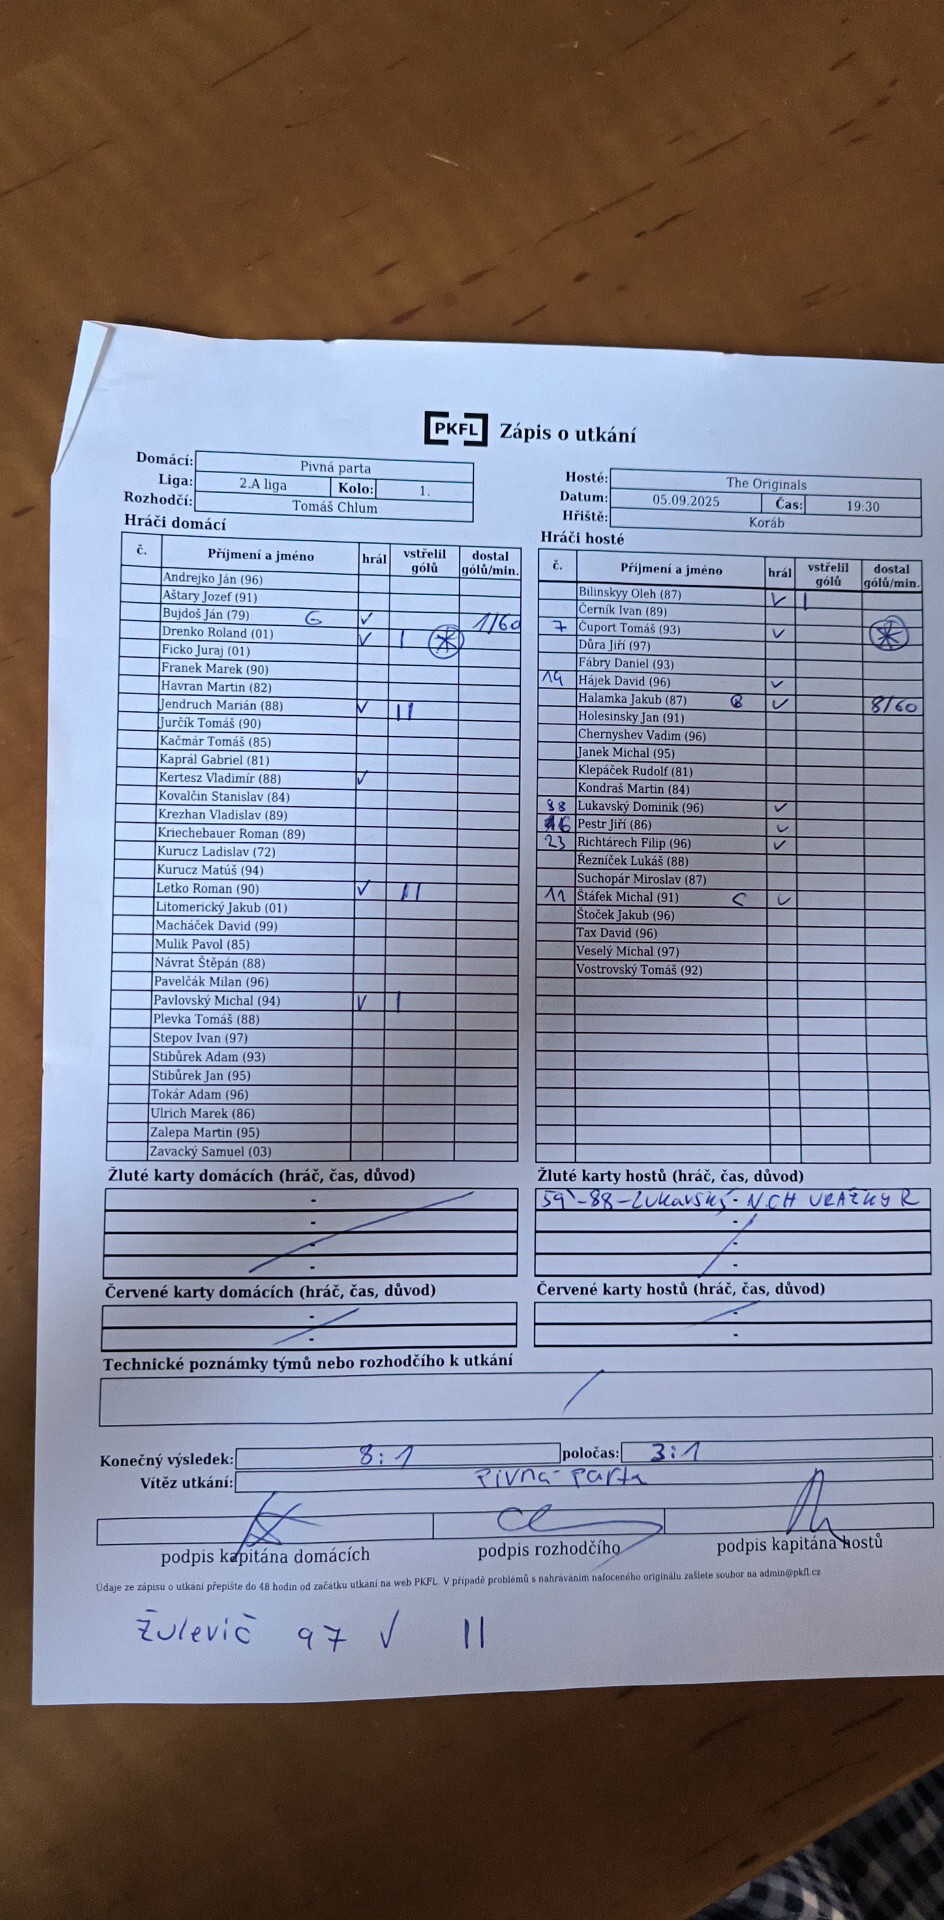 PKFL Zápis o utkání
Domácí: Pivná parta
Liga: 2.A liga Kolo: 1.
Rozhodčí: Tomáš Chlum
Hosté: The Originals
Datum: 05.09.2025 Čas: 19:30
Hřiště: Koráb
Hráči domácí
č. Příjmení a jméno hrál vstřelil gólů dostal gólů/min.
Andrejko Ján (96)
Aštary Jozef (91)
Bujdoš Ján (79) G ✓ 1/60
Drenko Roland (01) ✓ |
Ficko Juraj (01)
Franek Marek (90)
Havran Martin (82)
Jendruch Marián (88) ✓ ||
Jurčík Tomáš (90)
Kačmár Tomáš (85)
Kaprál Gabriel (81)
Kertesz Vladimír (88) ✓
Kovalčin Stanislav (84)
Krezhan Vladislav (89)
Kriechebauer Roman (89)
Kurucz Ladislav (72)
Kurucz Matúš (94)
Letko Roman (90) ✓ ||
Litomerický Jakub (01)
Macháček David (99)
Mulik Pavol (85)
Návrat Štěpán (88)
Pavelčák Milan (96)
Pavlovský Michal (94) ✓ |
Plevka Tomáš (88)
Stepov Ivan (97)
Stibůrek Adam (93)
Stibůrek Jan (95)
Tokár Adam (96)
Ulrich Marek (86)
Zalepa Martin (95)
Zavacký Samuel (03)
Hráči hosté
č. Příjmení a jméno hrál vstřelil gólů dostal gólů/min.
Bilinskyy Oleh (87) ✓ |
Černík Ivan (89)
7 Čuport Tomáš (93) ✓
Důra Jiří (97)
Fábry Daniel (93)
14 Hájek David (96) ✓
Halamka Jakub (87) ✓ 8/60
Holesinsky Jan (91)
Chernyshev Vadim (96)
Janek Michal (95)
Klepáček Rudolf (81)
Kondraš Martin (84)
88 Lukavský Dominik (96) ✓
16 Pestr Jiří (86) ✓
23 Richtárech Filip (96) ✓
Řezníček Lukáš (88)
Suchopár Miroslav (87)
11 Štáfek Michal (91) C ✓
Štoček Jakub (96)
Tax David (96)
Veselý Michal (97)
Vostrovský Tomáš (92)
Žluté karty domácích (hráč, čas, důvod)
-
-
-
-
Žluté karty hostů (hráč, čas, důvod)
59'-88-Lukavský - NCH URÁŽKY R
-
-
-
Červené karty domácích (hráč, čas, důvod)
-
-
Červené karty hostů (hráč, čas, důvod)
-
-
Technické poznámky týmů nebo rozhodčího k utkání
Konečný výsledek: 8:1 poločas: 3:1
Vítěz utkání: Pivná parta
podpis kapitána domácích podpis rozhodčího podpis kapitána hostů
Údaje ze zápisu o utkání přepište do 48 hodin od začátku utkání na web PKFL. V případě problémů s nahráváním nafoceného originálu zašlete soubor na admin@pkfl.cz
Žulevič 97 ✓ ||